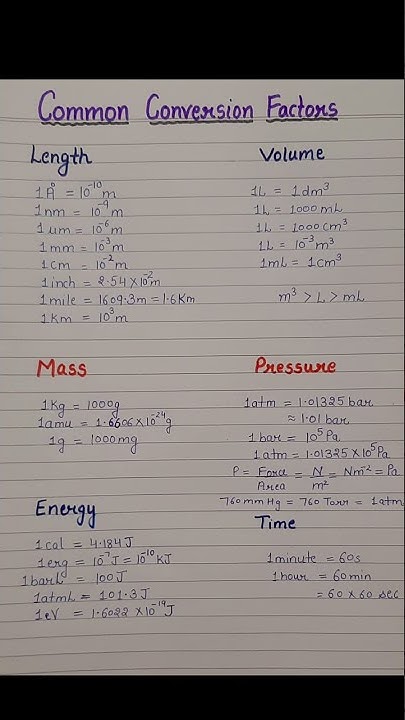 Common Conversion Factors
Length
1Å = 10⁻¹⁰m
1nm = 10⁻⁹m
1um = 10⁻⁶m
1mm = 10⁻³m
1cm = 10⁻²m
1inch = 2.54×10⁻²m
1mile = 1609.3m = 1.6Km
1Km = 10³m
Volume
1L = 1dm³
1L = 1000mL
1L = 1000cm³
1L = 10⁻³m³
1mL = 1cm³
m³ > L > mL
Mass
1Kg = 1000g
1amu = 1.6606×10⁻²⁴g
1g = 1000mg
Pressure
1atm = 1.01325 bar
≈ 1.01 bar
1 bar = 10⁵Pa
1atm = 1.01325×10⁵Pa
P = Force/Area = N/m² = Nm⁻² = Pa
760mmHg = 760Torr = 1atm
Energy
1cal = 4.184J
1erg = 10⁻⁷J = 10⁻¹⁰KJ
1barL = 100J
1atmL = 101.3J
1eV = 1.6022×10⁻¹⁹J
Time
1minute = 60s
1hour = 60min
= 60×60 sec